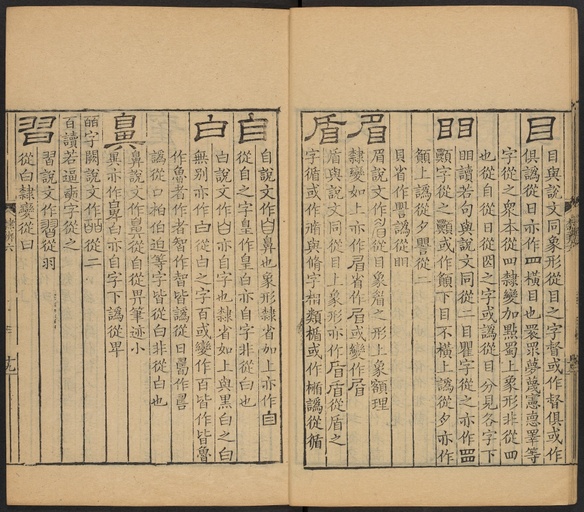 目 目與說文同象形從目之字督或作督俱或作
俱譌從日亦作罒橫目也睘眔夢蔑憲悳睪等
字從之衆本從罒隸變加點蜀上象形非從四
也從自從日從囟之字或譌從目分見各字下
䀠 䀠讀若句與說文同從二目瞿字從之亦作
顟字從之或作下目不橫上譌從夕亦作
上譌從夕譻從二
貝省作譻譌從䀠
眉 眉說文作從目象眉之形上象額理
隸變如上亦作眉省作眉或變作眉
盾 盾與說文同從目上象形亦作盾盾從盾之
字循或作脩與脩字相類楯或作楯譌從循
自 自說文作自鼻也象形隸省如上亦作自
從自之字皇作皇白亦自字非從白也
白 白說文作白亦自字也隸省如上與黑白之白
無别亦作白從白之字百或變作百皆作皆魯
作魯者作者智作智皆譌從日畧作畧
譌從口柏伯迫等字皆從白非從白也
鼻 鼻說文作鼻從自從畀筆迹小
異亦作鼻白亦自字下譌從畀
皕字闕說文作皕從二
百讀若逼奭字從之
習 習說文作習從羽
從白隸變從日